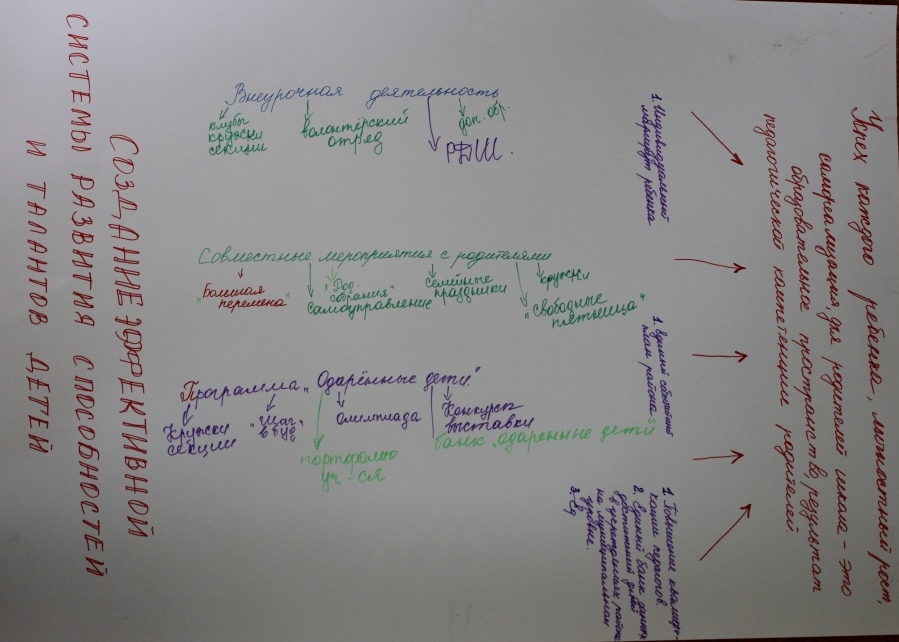 СОЗДАНИЕ ЭФФЕКТИВНОЙ
СИСТЕМЫ РАЗВИТИЯ СПОСОБНОСТЕЙ
И ТАЛАНТОВ ДЕТЕЙ
Внеурочная деятельность
клубы
кружки
секции
волонтёрский
отряд
РДШ.
доп. обр.
Совместные мероприятия с родителями
"Большая
перемена"
"Род.
собрания"
самоуправление
семейные
праздники
"Свободные
пятница"
кружки
Программа "Одарённые дети"
Кружки
секции
"Шаг
в буд."
портфолио
уч-ся
Олимпиада
Конкурсы
выставки
банк "одаренные дети"
1. Индивидуальный
маршрут ребенка
1. Единый событийный
план района
1. Повышение квалифи-
кации педагогов.
2. Единый банк данных
достижений детей
в учреждениях района
на муниципальном
уровне.
3. Ед
Успех каждого ребенка, личностный рост,
самореализация, для родителей школа - это
образовательное пространство, результат
педагогической компетенции родителей